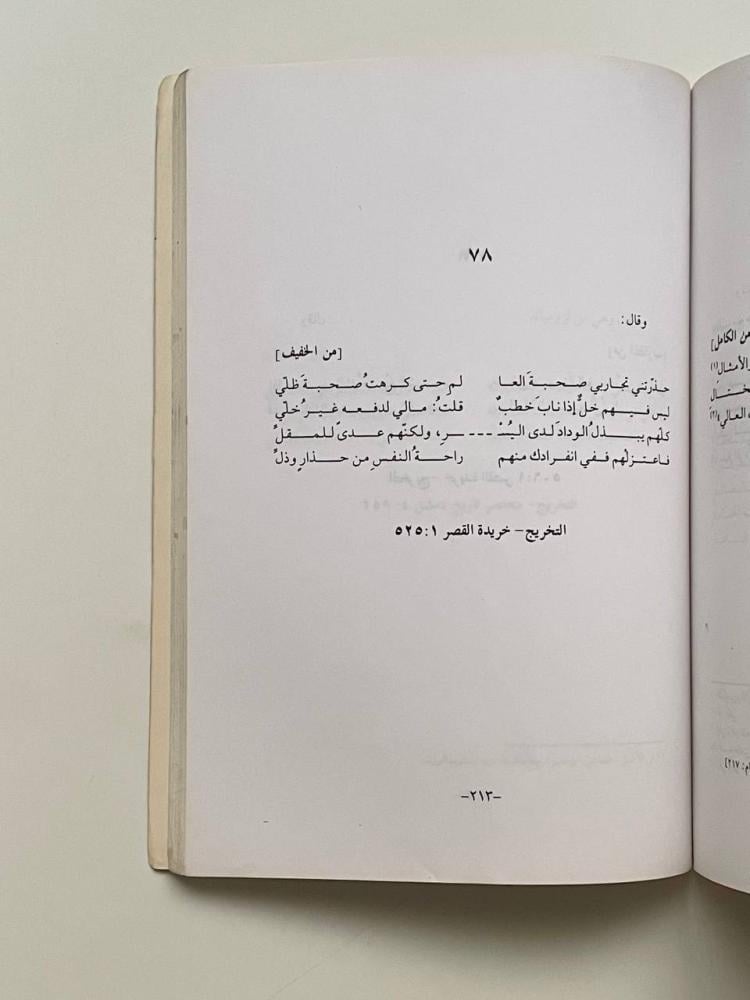 ٧٨
وقال:
[من الخفيف]
حذرتني تجاربي صحبةَ العا لم حتى كرهتُ صحبةَ ظلّي
ليس فيهم خلٌّ إذا نابَ خطبٌ قلتُ: مالي لدفعه غيرُ خلّي
كلّهم يبذلُ الودادَ لدى اليُسْـ ـرِ، ولكنّهم عدىً للمقلِّ
فاعتزلْهم ففي انفرادك منهم راحةُ النفسِ من حذارٍ وذلِّ
التخريج- خريدة القصر ١: ٥٢٥
-٢١٣-
من الكامل]
الأمثال(١)
العالي(٢)
٢١٧]